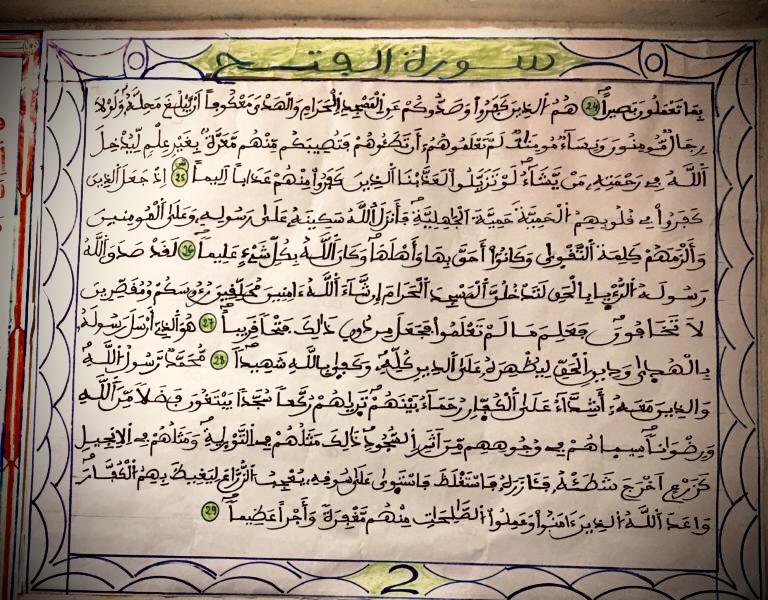 سورة الفتح
بِمَا تَعْمَلُونَ بَصِيراً 24 هُمُ الذِينَ كَفَرُوا وَصَدُّوكُمْ عَنِ الْمَسْجِدِ الْحَرَامِ وَالْهَدْيَ مَعْكُوفاً اَنْ يَّبْلُغَ مَحِلَّهُ وَلَوْلاَ
رِجَالٌ مُّومِنُونَ وَنِسَاءٌ مُّومِنَاتٌ لَّمْ تَعْلَمُوهُمُ أَن تَطَئُوهُمْ فَتُصِيبَكُم مِّنْهُم مَّعَرَّةٌ بِغَيْرِ عِلْمٍ لِّيُدْخِلَ
اَللَّهُ فِي رَحْمَتِهِ مَنْ يَّشَاءُ لَوْ تَزَيَّلُوا لَعَذَّبْنَا الذِينَ كَفَرُوا مِنْهُمْ عَذَاباً اَلِيماً 25 إِذْ جَعَلَ الذِينَ
كَفَرُوا فِي قُلُوبِهِمُ الْحَمِيَّةَ حَمِيَّةَ الْجَاهِلِيَّةِ فَأَنزَلَ اللَّهُ سَكِينَتَهُ عَلَىٰ رَسُولِهِ وَعَلَى الْمُومِنِينَ
وَأَلْزَمَهُمْ كَلِمَةَ التَّقْوَىٰ وَكَانُوا أَحَقَّ بِهَا وَأَهْلَهَا وَكَانَ اللَّهُ بِكُلِّ شَيْءٍ عَلِيماً 26 لَقَدْ صَدَقَ اللَّهُ
رَسُولَهُ الرُّءْيَا بِالْحَقِّ لَتَدْخُلُنَّ الْمَسْجِدَ الْحَرَامَ إِن شَاءَ اللَّهُ ءَامِنِينَ مُحَلِّقِينَ رُءُوسَكُمْ وَمُقَصِّرِينَ
لاَ تَخَافُونَ فَعَلِمَ مَا لَمْ تَعْلَمُوا فَجَعَلَ مِن دُونِ ذَٰلِكَ فَتْحاً قَرِيباً 27 هُوَ الذِي أَرْسَلَ رَسُولَهُ
بِالْهُدَىٰ وَدِينِ الْحَقِّ لِيُظْهِرَهُ عَلَى الدِّينِ كُلِّهِ وَكَفَىٰ بِاللَّهِ شَهِيداً 28 مُّحَمَّدٌ رَّسُولُ اللَّهِ
وَالذِينَ مَعَهُ أَشِدَّاءُ عَلَى الْكُفَّارِ رُحَمَاءُ بَيْنَهُمْ تَرَىٰهُمْ رُكَّعاً سُجَّداً يَبْتَغُونَ فَضْلاً مِّنَ اللَّهِ
وَرِضْوَاناً سِيمَاهُمْ فِي وُجُوهِهِم مِّنَ اَثَرِ السُّجُودِ ذَٰلِكَ مَثَلُهُمْ فِي التَّوْرَىٰةِ وَمَثَلُهُمْ فِي الاِنجِيلِ
كَزَرْعٍ اَخْرَجَ شَطْئَهُ فَئَازَرَهُ فَاسْتَغْلَظَ فَاسْتَوَىٰ عَلَىٰ سُوقِهِ يُعْجِبُ الزُّرَّاعَ لِيَغِيظَ بِهِمُ الْكُفَّارَ
وَاعَدَ اللَّهُ الذِينَ ءَامَنُوا وَعَمِلُوا الصَّالِحَاتِ مِنْهُم مَّغْفِرَةً وَأَجْراً عَظِيماً 29
2